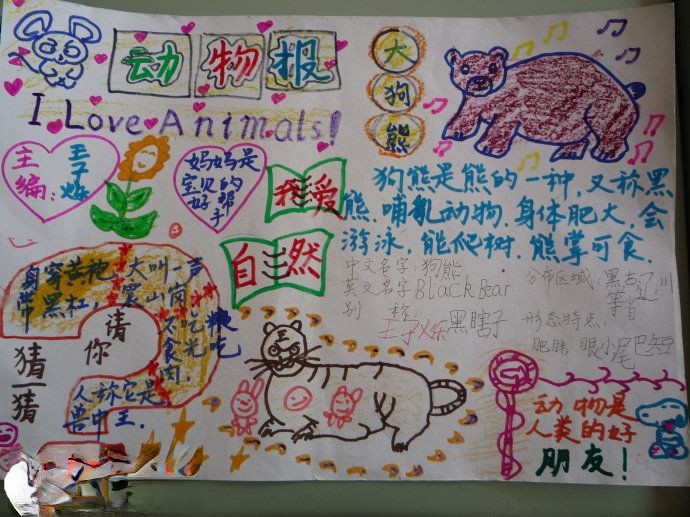 动物报
I Love Animals!
大
狗
熊
主编:
妈妈是
宝贝的
好帮
手
我爱
自然
狗熊是熊的一种,又称黑
熊.哺乳动物.身体肥大.会
游泳,能爬树.熊掌可食.
中文名字:狗熊
英文名字Black Bear
别称:
黑瞎子
分布区域:黑吉辽川
等省
形态特点:
肥胖 眼小尾巴短
身穿黄袍
带黑杠,
大叫一声
震山岗
不吃粮
吃
光
食肉.
人称它是
兽中王.
请你
猜一猜
动物是
人类的好
朋友!